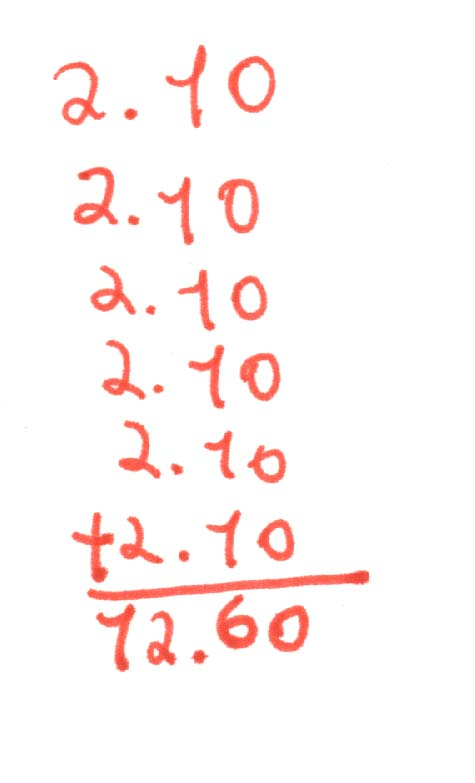 2.10
2.10
2.10
2.10
2.10
+2.10
12.60